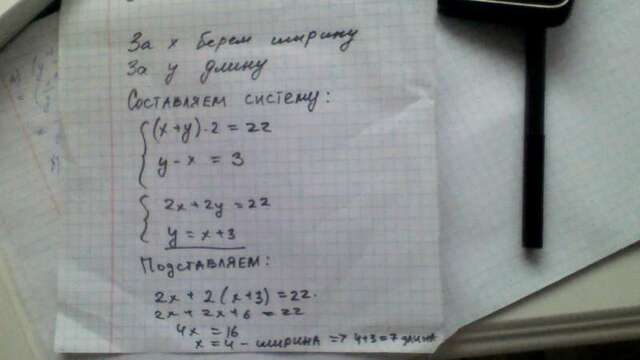 За x берем ширину
За y длину
Составляем систему:
(x+y)·2 = 22
y-x = 3
2x+2y=22
y=x+3
Подставляем:
2x+2(x+3)=22.
2x+2x+6=22
4x=16
x=4 - ширина => 4+3=7 длина